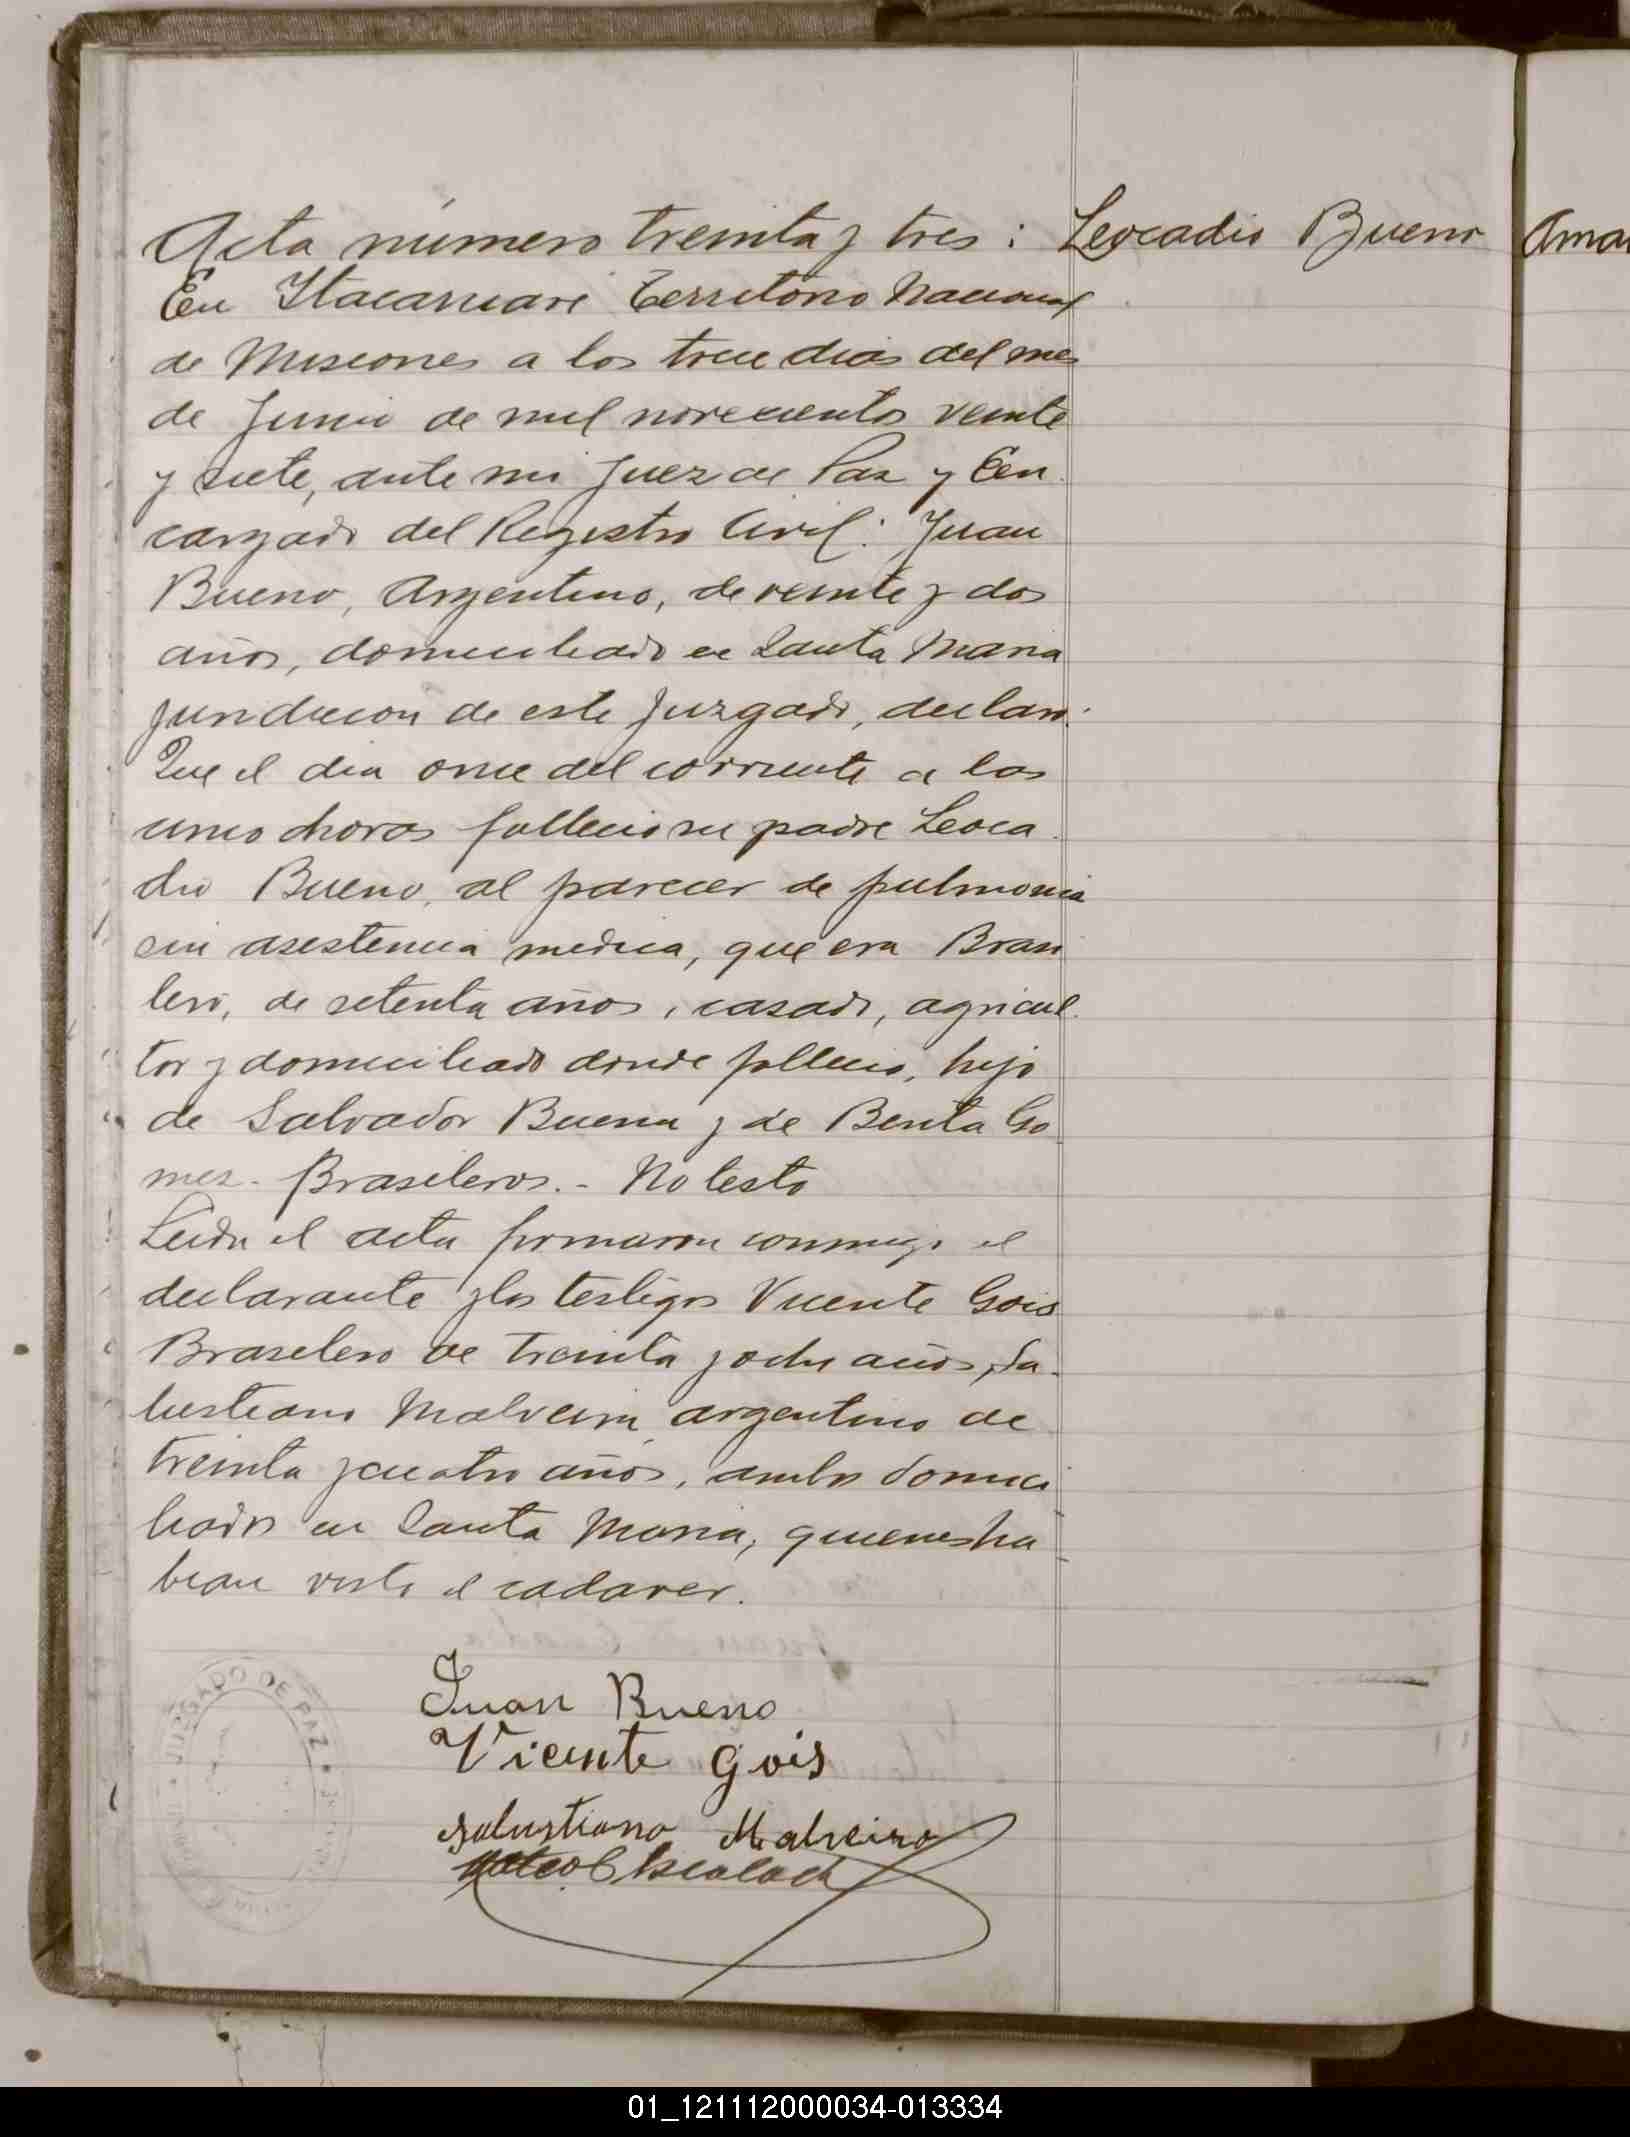 Acta número treinta y tres :
Leocadio Bueno
Ama
En Itacaruaré Territorio Nacional
de Misiones a los trece dias del mes
de Junio de mil novecientos veinte
y siete, ante mi Juez de Paz y En
cargado del Registro Civil: Juan
Bueno, Argentino, de veinte y dos
años, domiciliado en Santa Maria
jurisdiccion de este Juzgado, declaro:
Que el dia once del corriente a las
cinco horas fallecio su padre Leoca
dio Bueno, al parecer de pulmonia
sin asistencia medica, que era Brasi
lero, de setenta años, casado, agricul
tor y domiciliado donde fallecio, hijo
de Salvador Bueno y de Benita Go
mez. Brasileros. - No testo
Leida el acta firmaron conmigo el
declarante y los testigos Vicente Gois
Brasilero de treinta y ocho años, Sa
lustiano Malveira argentino de
treinta y cuatro años, ambos domici
liados en Santa Maria, quienes ha
bian visto el cadaver.
Juan Bueno
Vicente Gois
Salustiano Malveira
JUZGADO DE PAZ
01_121112000034-013334